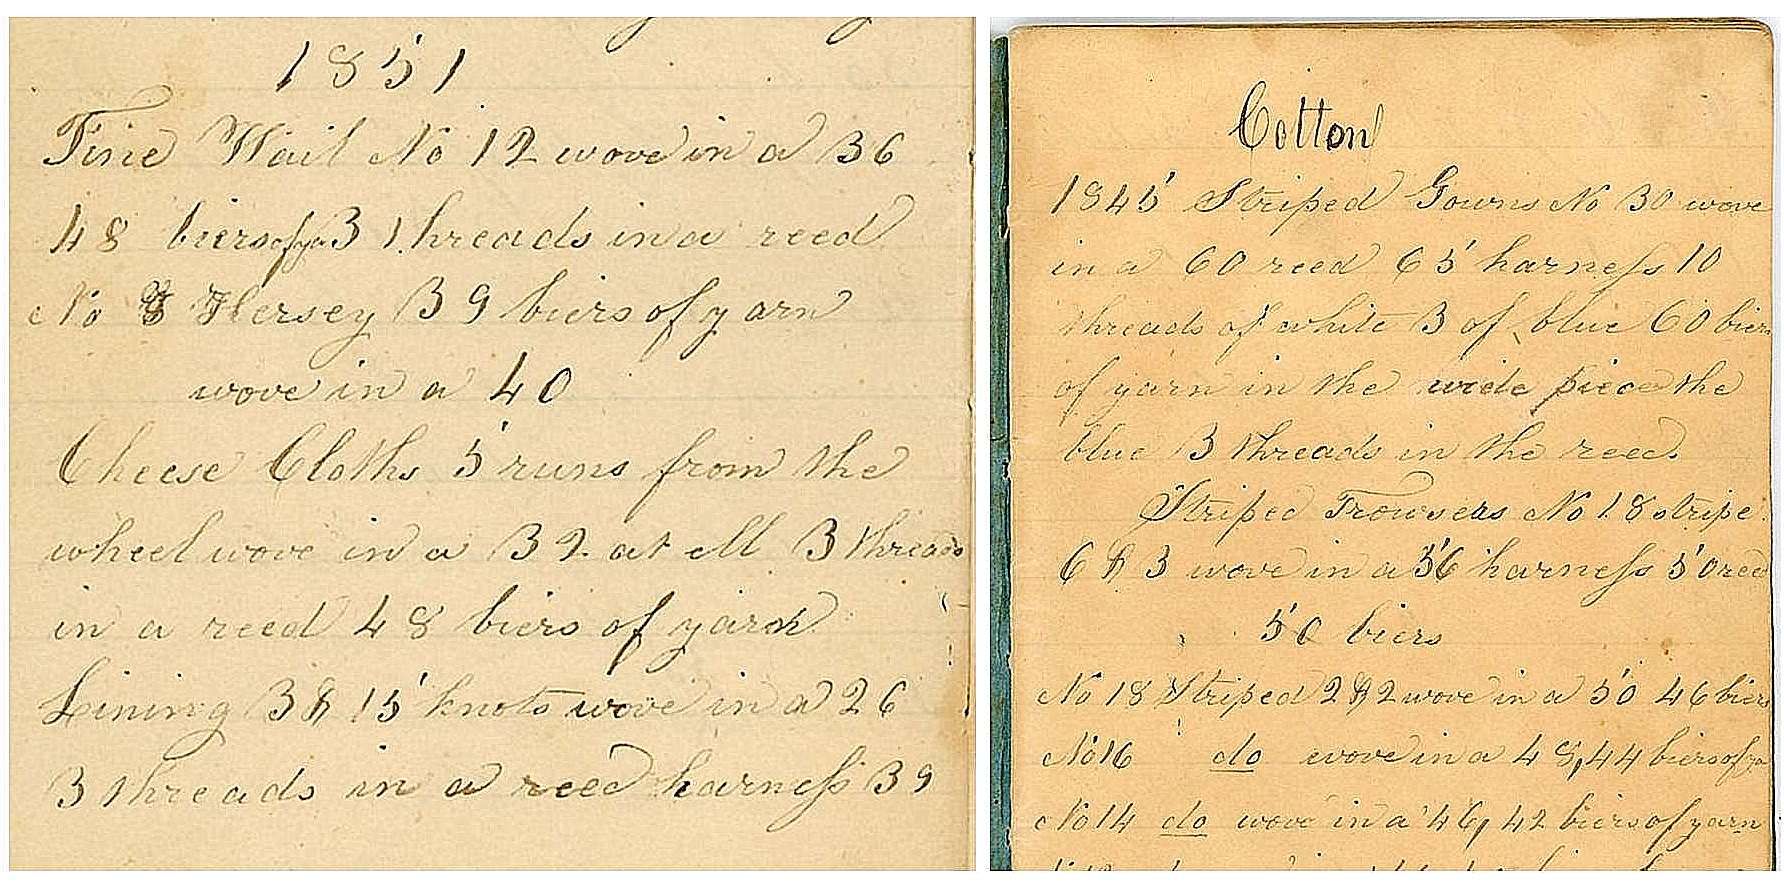 1851
Fine Wail No 12 wove in a 36
48 biers of ya 3 threads in a reed
No 8 Kersey 39 biers of yarn
wove in a 40
Cheese Cloths 5 runs from the
wheel wove in a 32 at ell 3 threads
in a reed 48 biers of yarn
Lining 3 & 15 knots wove in a 26
3 threads in a reed harness 39
Cotton
1845 Striped Gowns No 30 wove
in a 60 reed 65 harness 10
threads of white 3 of blue 60 biers
of yarn in the wide piece the
blue 3 threads in the reed.
Striped Trowsers No 18 stripe
6 & 3 wove in a 56 harness 50 reed
50 biers
No 18 Striped 2 & 2 wove in a 50 46 biers
No 16 do wove in a 48, 44 biers of ya
No 14 do wove in a 46, 42 biers of yarn